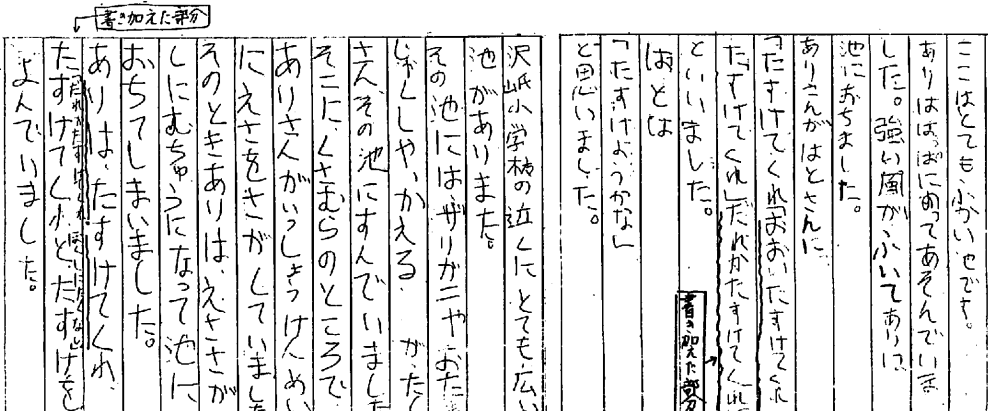 ここはとてもふかい池です。
ありははっぱにのってあそんでいま
した。強い風がふいてありは
池におちました。
ありさんがはとさんに
「たすけてくれ「おおいたすけてくれ
たすけてくれ」だれかたすけてくれ
といいました。
はとは
「たすけようかな」
と思いました。
書き加えた部分
沢小学校の近くにとても広い
池がありまた。
その池にはザリガニやおた
じゃくしやかえるがたく
さんその池にすんでいました
そこに、くさむらのところで
ありさんがいっしょうけんめい
にえさをさがしていました
そのときありは、えささが
しにむちゅうになって池に
おちてしまいました。
ありは、たすけてくれ、
たすけてくれとたすけを
よんでいました。
書き加えた部分